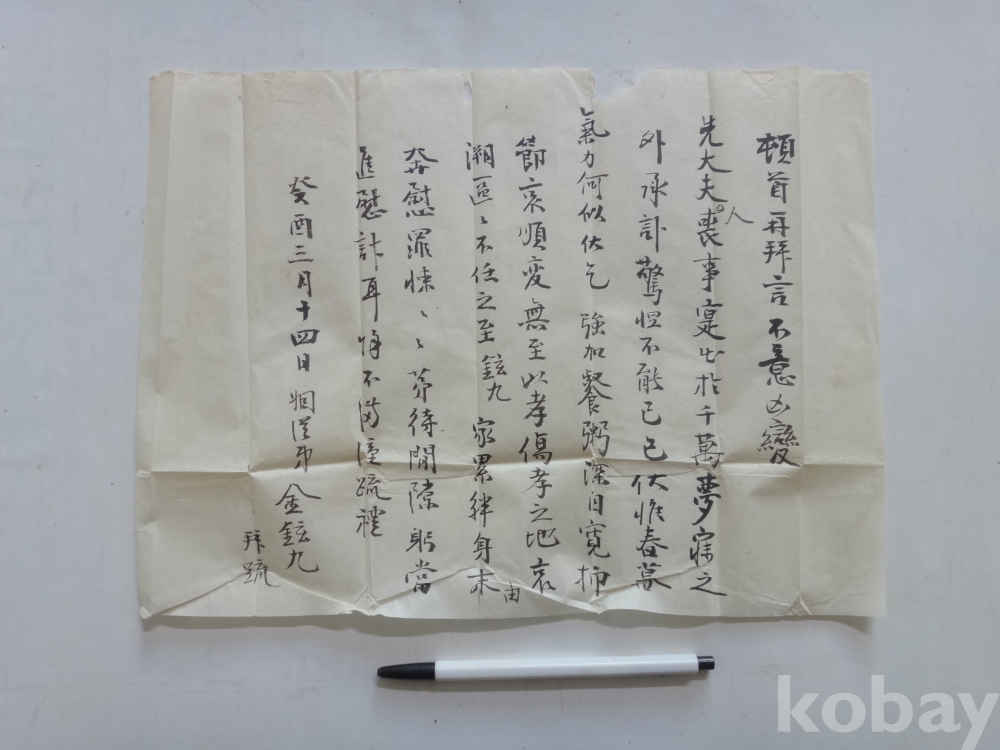 頓首再拜言不意凶變
先大夫人喪事寔出於千萬夢寐之
外承訃驚怛不能已已伏惟春暮
氣力何似伏乞強加餐粥深自寬抑
節哀順變無至以孝傷孝之地哀
溯區〻不任之至鉉九家累絆身末由
奔慰罪悚〻〻第待閒隙躬當
進慰計耳餘不備謹疏禮
癸酉三月十四日 弟金鉉九
拜疏
kobay